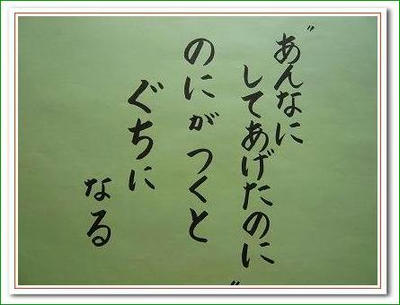 "あんなに
してあげたのに"
のにがつくと
ぐちに
なる